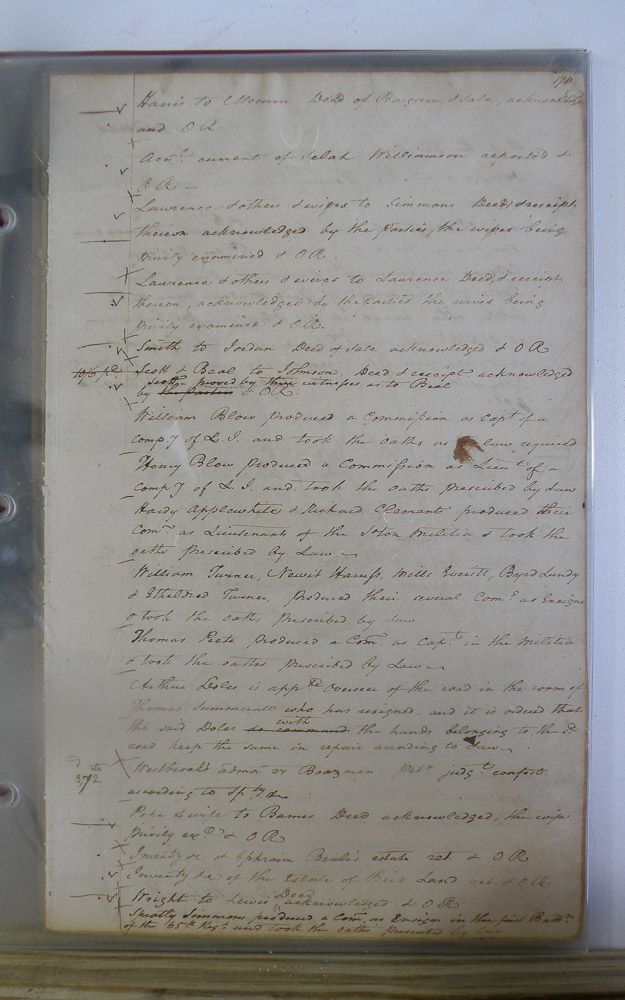 178
Harris to Mecum Deed of Bargain & Sale, acknowledged
and O R
Accot. current of Selah Williamson reported &
O R
Lawrence & others & wifes to Simmons Deed & receipt
thereon acknowledged by the Parties, the wifes being
privily examined & O R.
Lawrence & others & wives to Lawrence Deed & receipt
thereon, acknowledged by the Parties the wives being
privily examined & O R.
Smith to Jordan Deed of Sale acknowledged & O R
Scott & Beal to Johnson, Deed & receipt acknowledged
Scott proved by three witnesses as to Beal
by the Parties & O R.
William Blow produced a Commission as Capt. of a
compy of L. I. and took the oaths as law required
Henry Blow produced a Commission as Lieut. of a
compy of L I and took the oaths prescribed by Law
Hardy Applewhite & Richard Clements produced their
Coms. as Lieutenants of the Soton Militia & took the
oaths prescribed by Law
William Turner, Newit Harriss, Mills Everitt, Byrd Lundy
& Etheldred Turner, produced their several Coms. as Ensigns
& took the oaths prescribed by Law
Thomas Pete produced a Com. as Capt. in the Militia
& took the oaths prescribed by Law
Arthur Doles is appd. Overseer of the road in the room of
Thomas Summerell who has resigned and it is ordered that
with
the said Doles so command the hands belonging to the sd
road keep the same in repair according to Law
372
admor vs Bozeman Pet. judgt. confest
according to Spty &
Pope & wife to Barnes Deed acknowledged, the wife
privily exd. & O R
Inventy &c of Ephraim Beale's estate ret. & O R
Inventy &c of the Estate of Bird Land ret. & O R
Deed
Wright to Lewis acknowledged & O R
Simmons, produced a Com. as Ensign in the first Battn.
of the 65th Regt. and took the oaths prescribed by Law